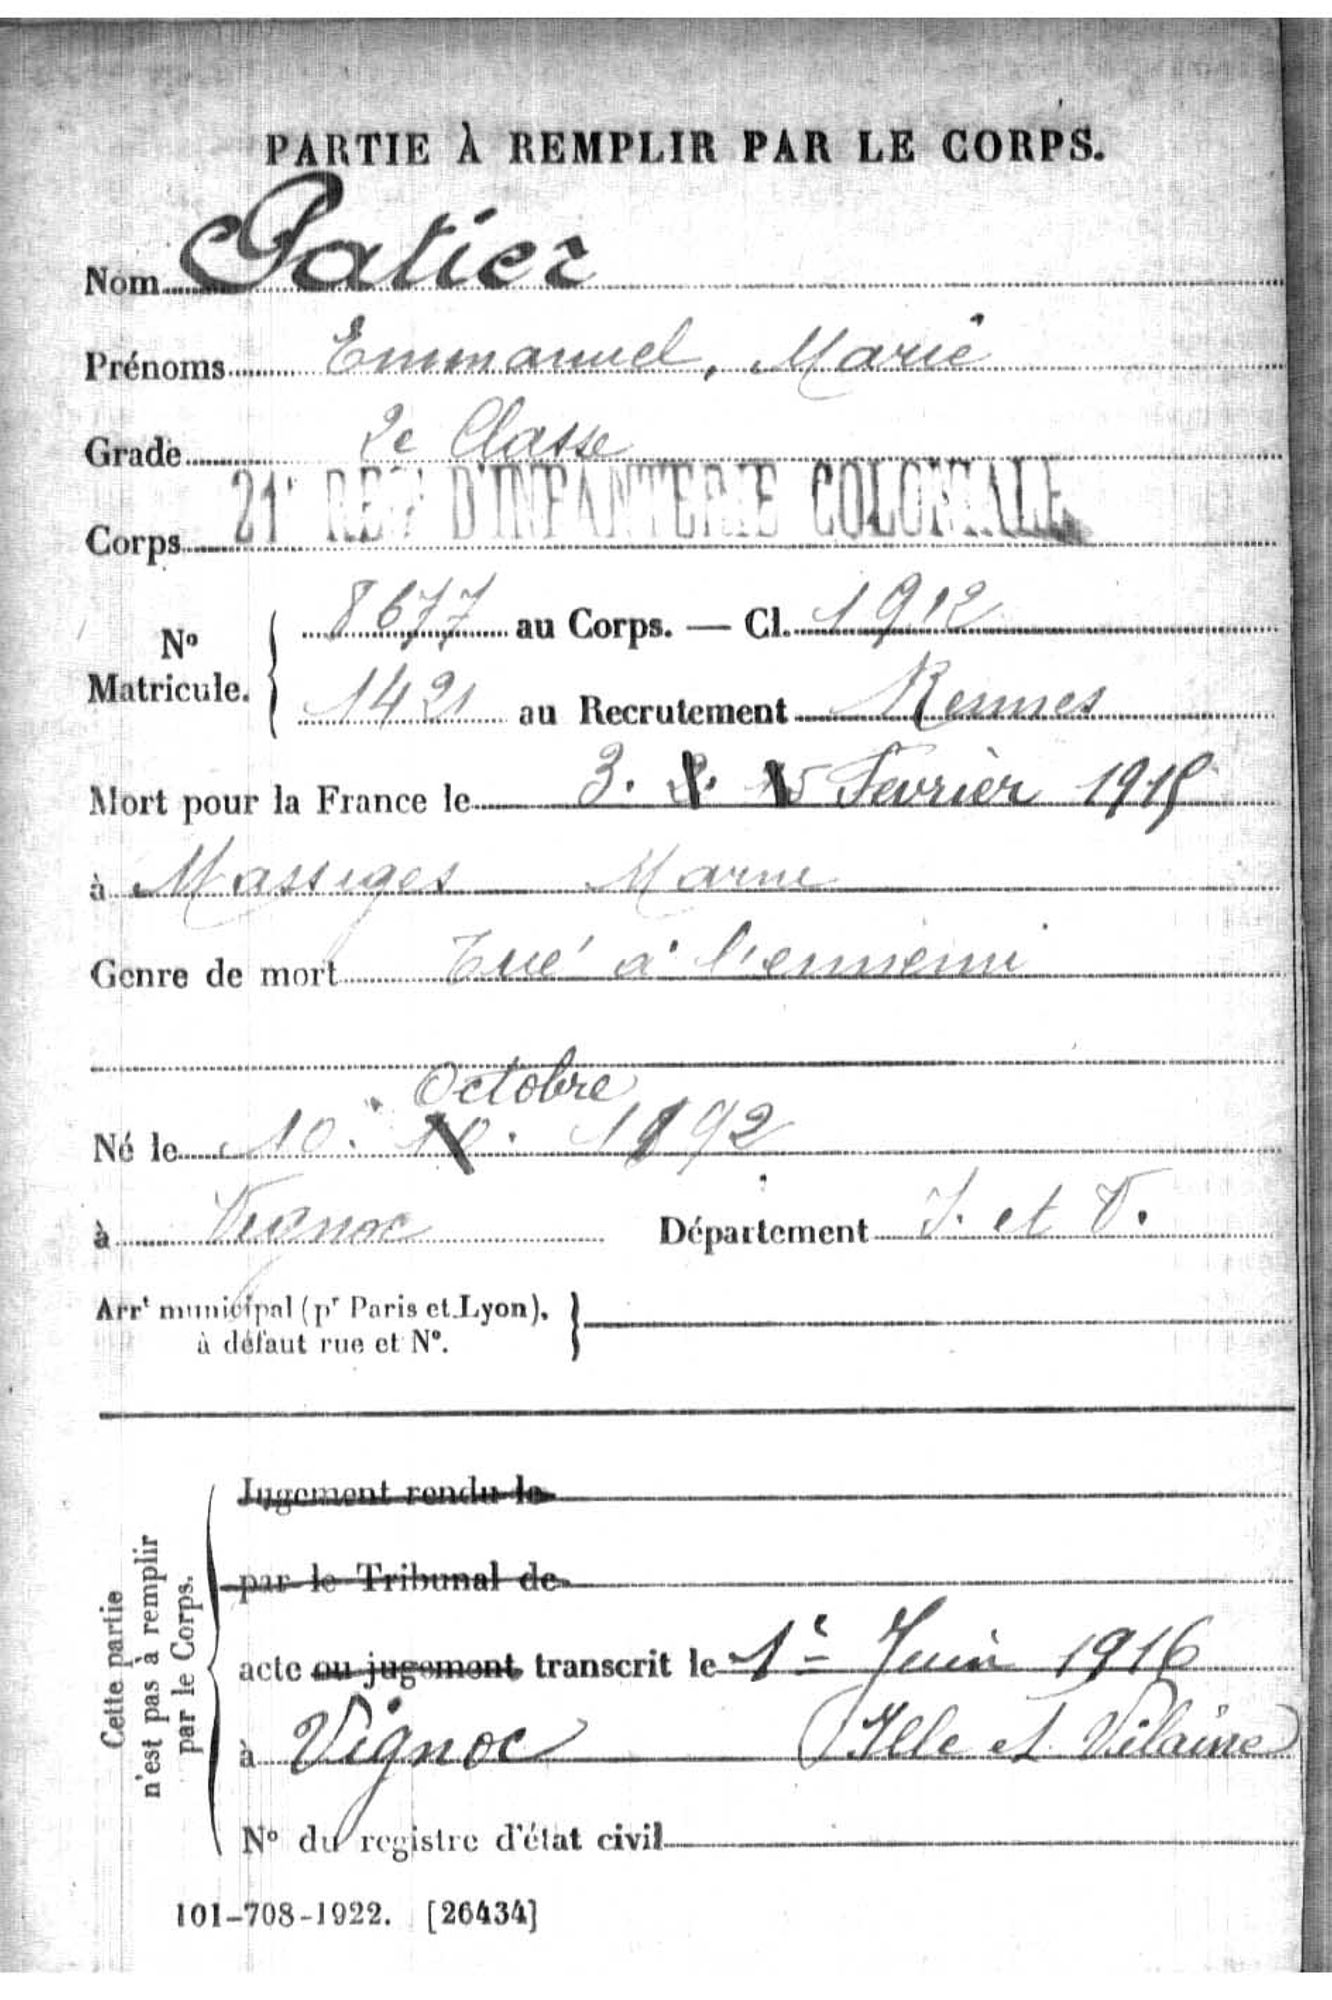 PARTIE À REMPLIR PAR LE CORPS.
Nom Patier
Prénoms Emmanuel, Marie
Grade 2e Classe
Corps 21e REGt D'INFANTERIE COLONIALE
No Matricule. 8677 au Corps. — Cl. 1912
1421 au Recrutement Rennes
Mort pour la France le 3. Fevrier 1915
à Massiges Marne
Genre de mort Tué à l'ennemi
Octobre
Né le 10. 10. 1892
à Vignoc Département I. et V.
Arrt municipal (pr Paris et Lyon),
à défaut rue et No.
Cette partie
n'est pas à remplir
par le Corps.
Jugement rendu le
par le Tribunal de
acte ou jugement transcrit le 1er Juin 1916
à Vignoc (Ille et Vilaine)
No du registre d'état civil
101-708-1922. [26434]